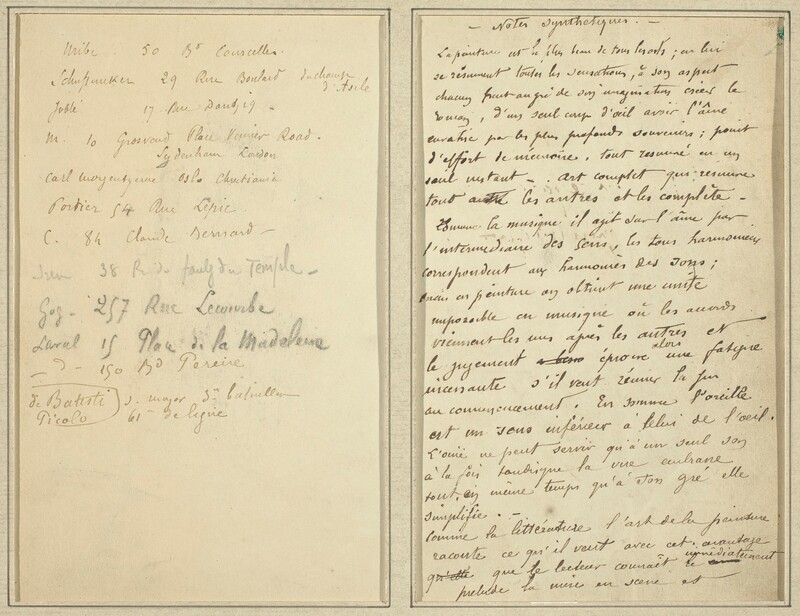 Uribe. 50 Bd Courcelles.
Schuffneker 29 Rue Boulard
d'Asile
Jobbé 17 Rue
M. 10 Grosvenor Place Road.
Sydenham London
Carl Oslo Christiania
Portier 54 Rue Lépic
C. 84 Claude Bernard —
38 R. du faubg du Temple —
257 Rue Lecourbe
Laval 15 Place de la Madeleine
— d° — 190 Bd Pereire
de Batisti s. major 3e bataillon
Picolo 61e de ligne
— Notes Synthétiques. —
La peinture est le plus beau de tous les arts ; en lui
se résument toutes les sensations, à son aspect
chacun peut au gré de son imagination créer le
roman, d'un seul coup d'œil avoir l'âme
envahie par les plus profonds souvenirs ; point
d'effort de mémoire, tout résumé en un
seul instant —. Art complet qui résume
tout les autres et les complète —
Comme la musique il agit sur l'âme par
l'intermédiaire des sens, les tons harmonieux
correspondent aux harmonies des sons ;
mais en peinture on obtient une unité
impossible en musique où les accords
viennent les uns après les autres et
le jugement éprouve alors une fatigue
incessante s'il veut réunir la fin
au commencement. En somme l'oreille
est un sens inférieur à celui de l'œil.
L'ouïe ne peut servir qu'à un seul son
à la fois tandisque la vue embrasse
tout, en même temps qu'à son gré elle
simplifie. —
Comme la littérature l'art de la peinture
raconte ce qu'il veut avec cet avantage
que le lecteur connaît immédiatement le
prélude la mise en scène et